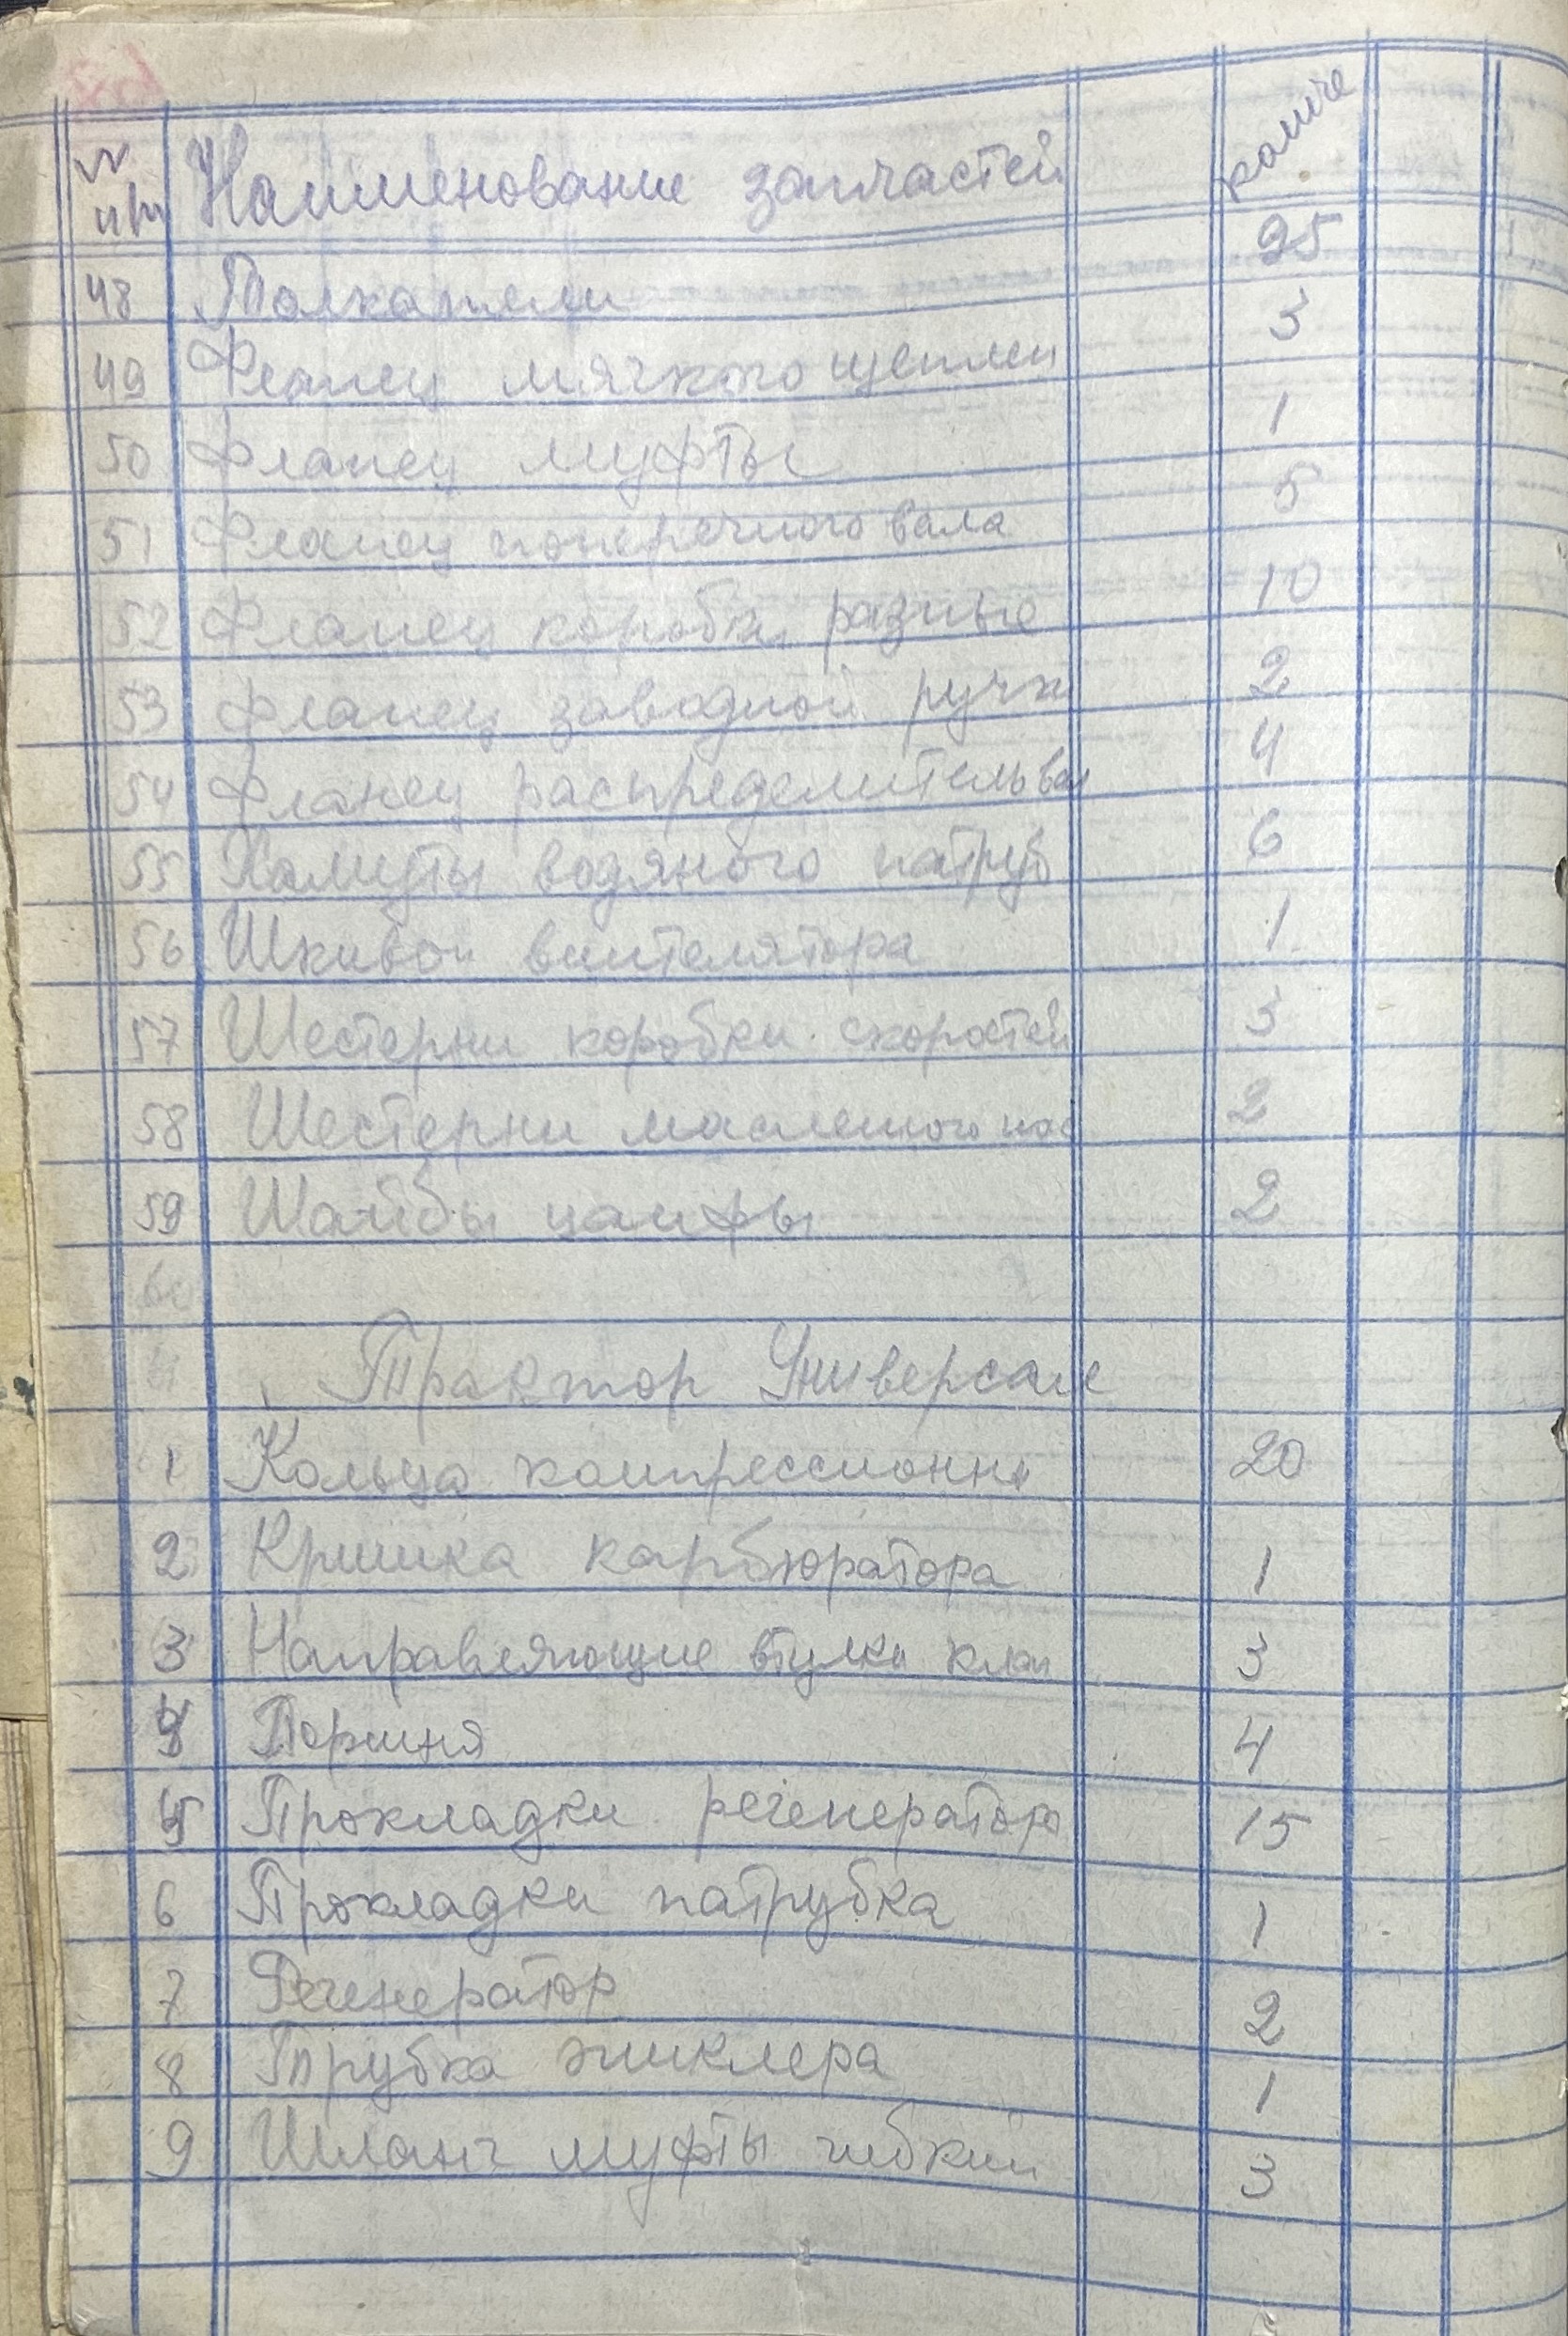 № п/п Наименование запчастей количе
48 Толкатели 25
49 Фланец мягкого цеплен 3
50 Фланец муфты 1
51 Фланец поперечного вала 5
52 Фланец коробки разные 10
53 Фланец заводной ручк 2
54 Фланец распределительвал 4
55 Хамуты водяного патруб 6
56 Шкивои вентелятора 1
57 Шестерни коробки скоростей 3
58 Шестерни масленого нас 2
59 Шайбы цапфы 2
60
Трактор Универсале
1 Кольца компрессионны 20
2 Кришка карбюратора 1
3 Направляющие втулки клап 3
4 Поршня 4
5 Прокладки регенератора 15
6 Прокладки патрубка 1
7 Регенератор 2
8 Трубка жиклера 1
9 Шланг муфты гибкий 3